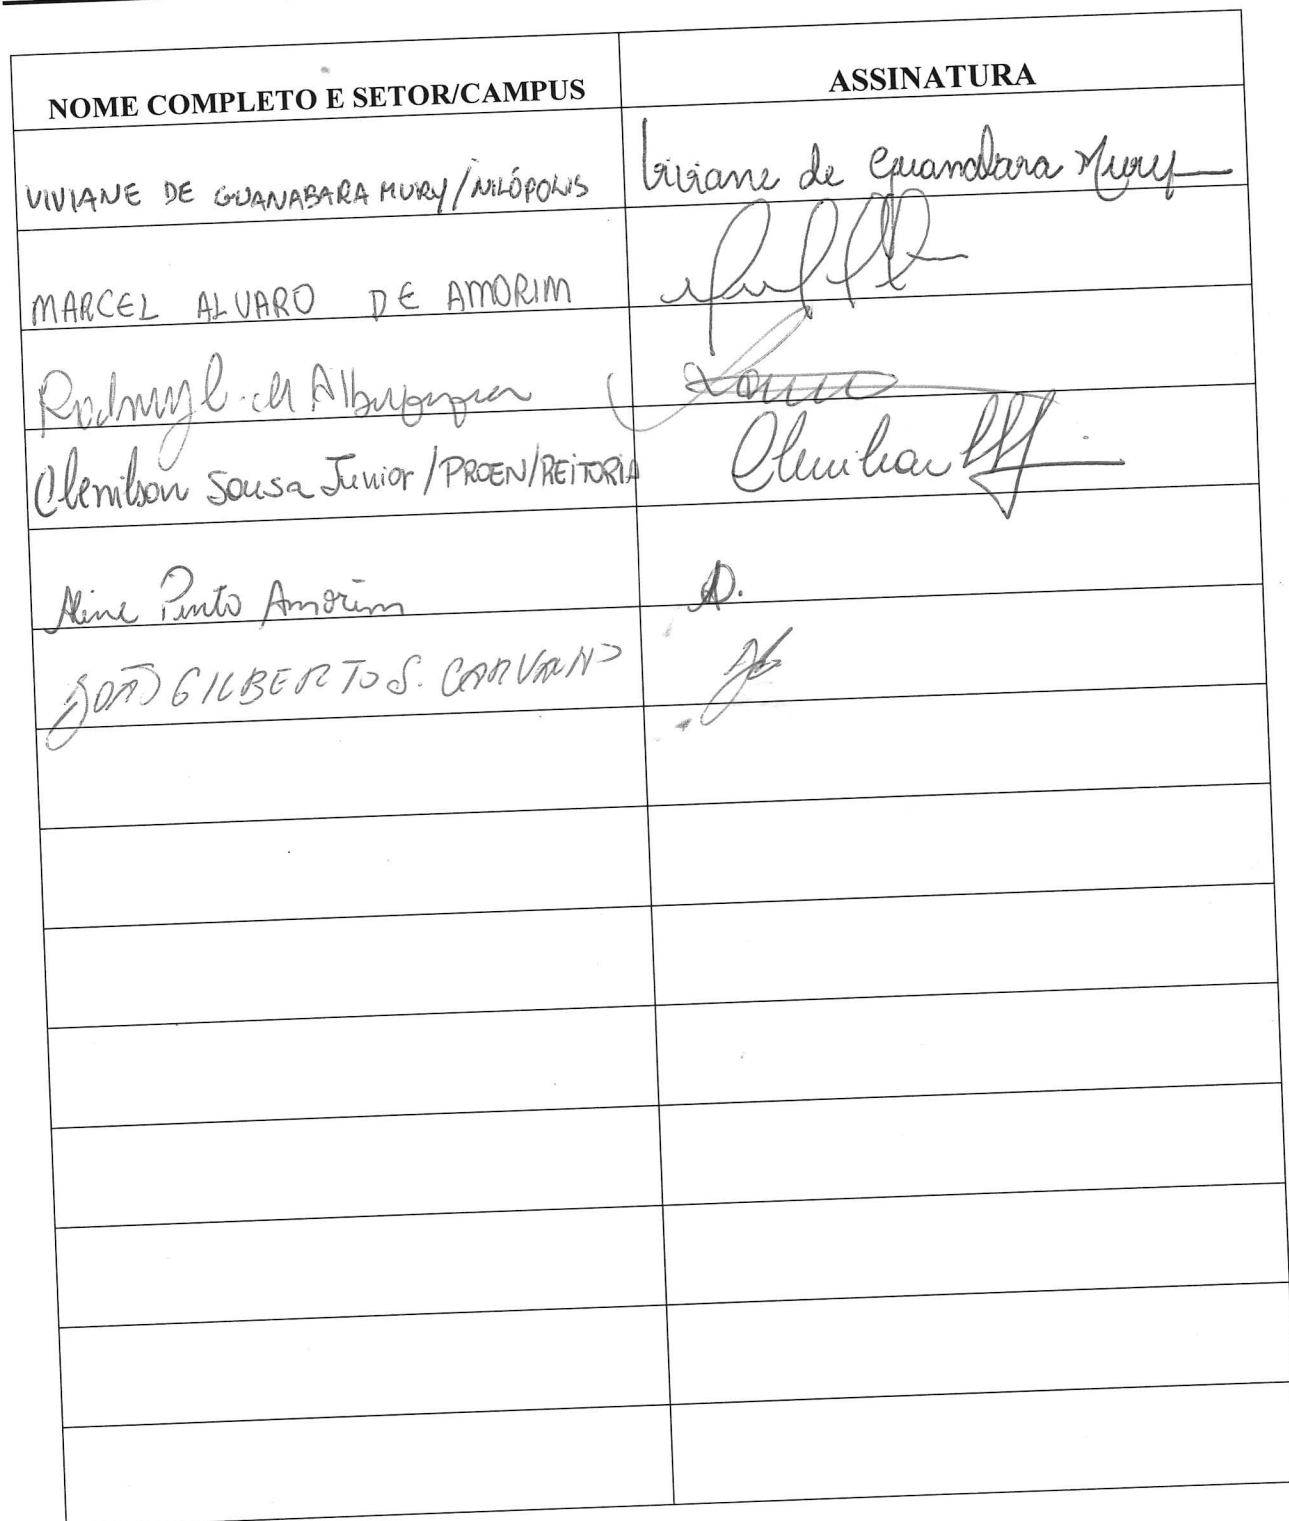 NOME COMPLETO E SETOR/CAMPUS ASSINATURA
VIVIANE DE GUANABARA MURY/NILÓPOLIS Viviane de Guanabara Mury
MARCEL ALVARO DE AMORIM
Albuquerque
Clenilson Sousa Junior/PROEN/REITORIA Clenilson
Aline Pinto Amorim A.
JOÃO GILBERTO S. CARVALHO